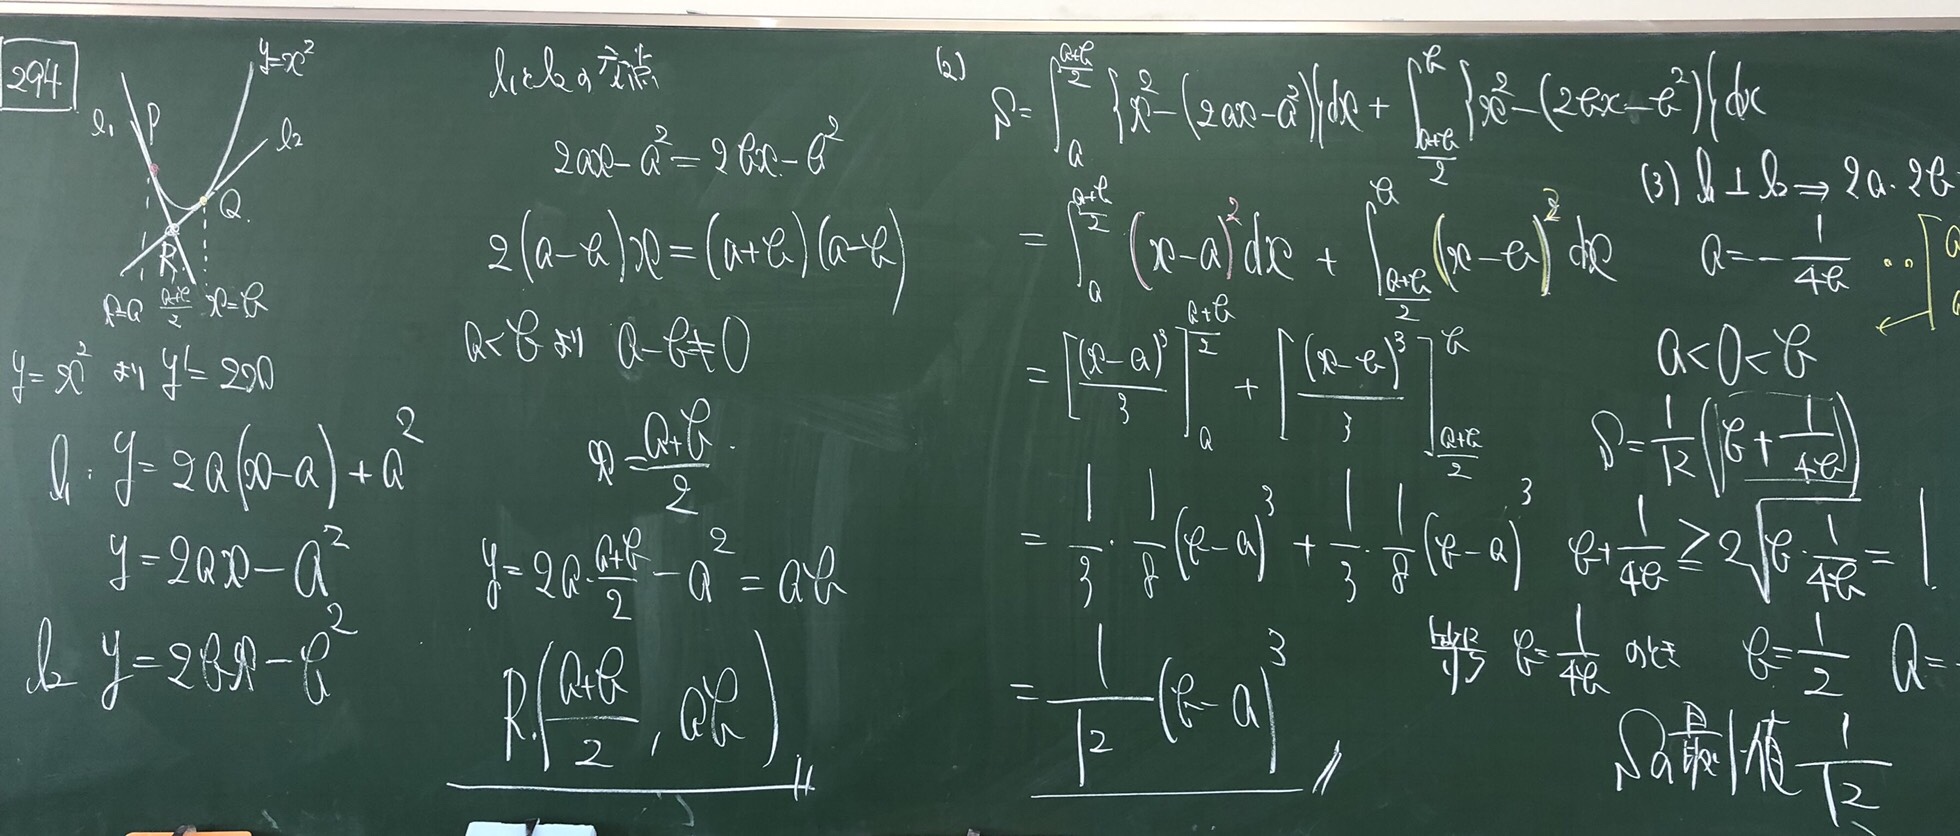 294
y=x²
l₁ P
l₂
Q
R
x=a (a+b)/2 x=b
y=x² より y'=2x
l₁: y=2a(x-a)+a²
y=2ax-a²
l₂ y=2bx-b²
l₁とl₂の交点
2ax-a²=2bx-b²
2(a-b)x=(a+b)(a-b)
a<b より a-b≠0
x=(a+b)/2
y=2a·(a+b)/2-a²=ab
R((a+b)/2, ab)
(2)
S=∫_a^{(a+b)/2}{x²-(2ax-a²)}dx+∫_{(a+b)/2}^b{x²-(2bx-b²)}dx
=∫_a^{(a+b)/2}(x-a)²dx+∫_{(a+b)/2}^b(x-b)²dx
=[(x-a)³/3]_a^{(a+b)/2}+[(x-b)³/3]_{(a+b)/2}^b
=1/3·1/8(b-a)³+1/3·1/8(b-a)³
=1/12(b-a)³
(3) l₁⊥l₂⇒2a·2b
a=-1/4b
a<0<b
S=1/12(b+1/4b)
b+1/4b≧2√(b·1/4b)=1
b=1/4b のとき b=1/2 a=
Sの最小値 1/12